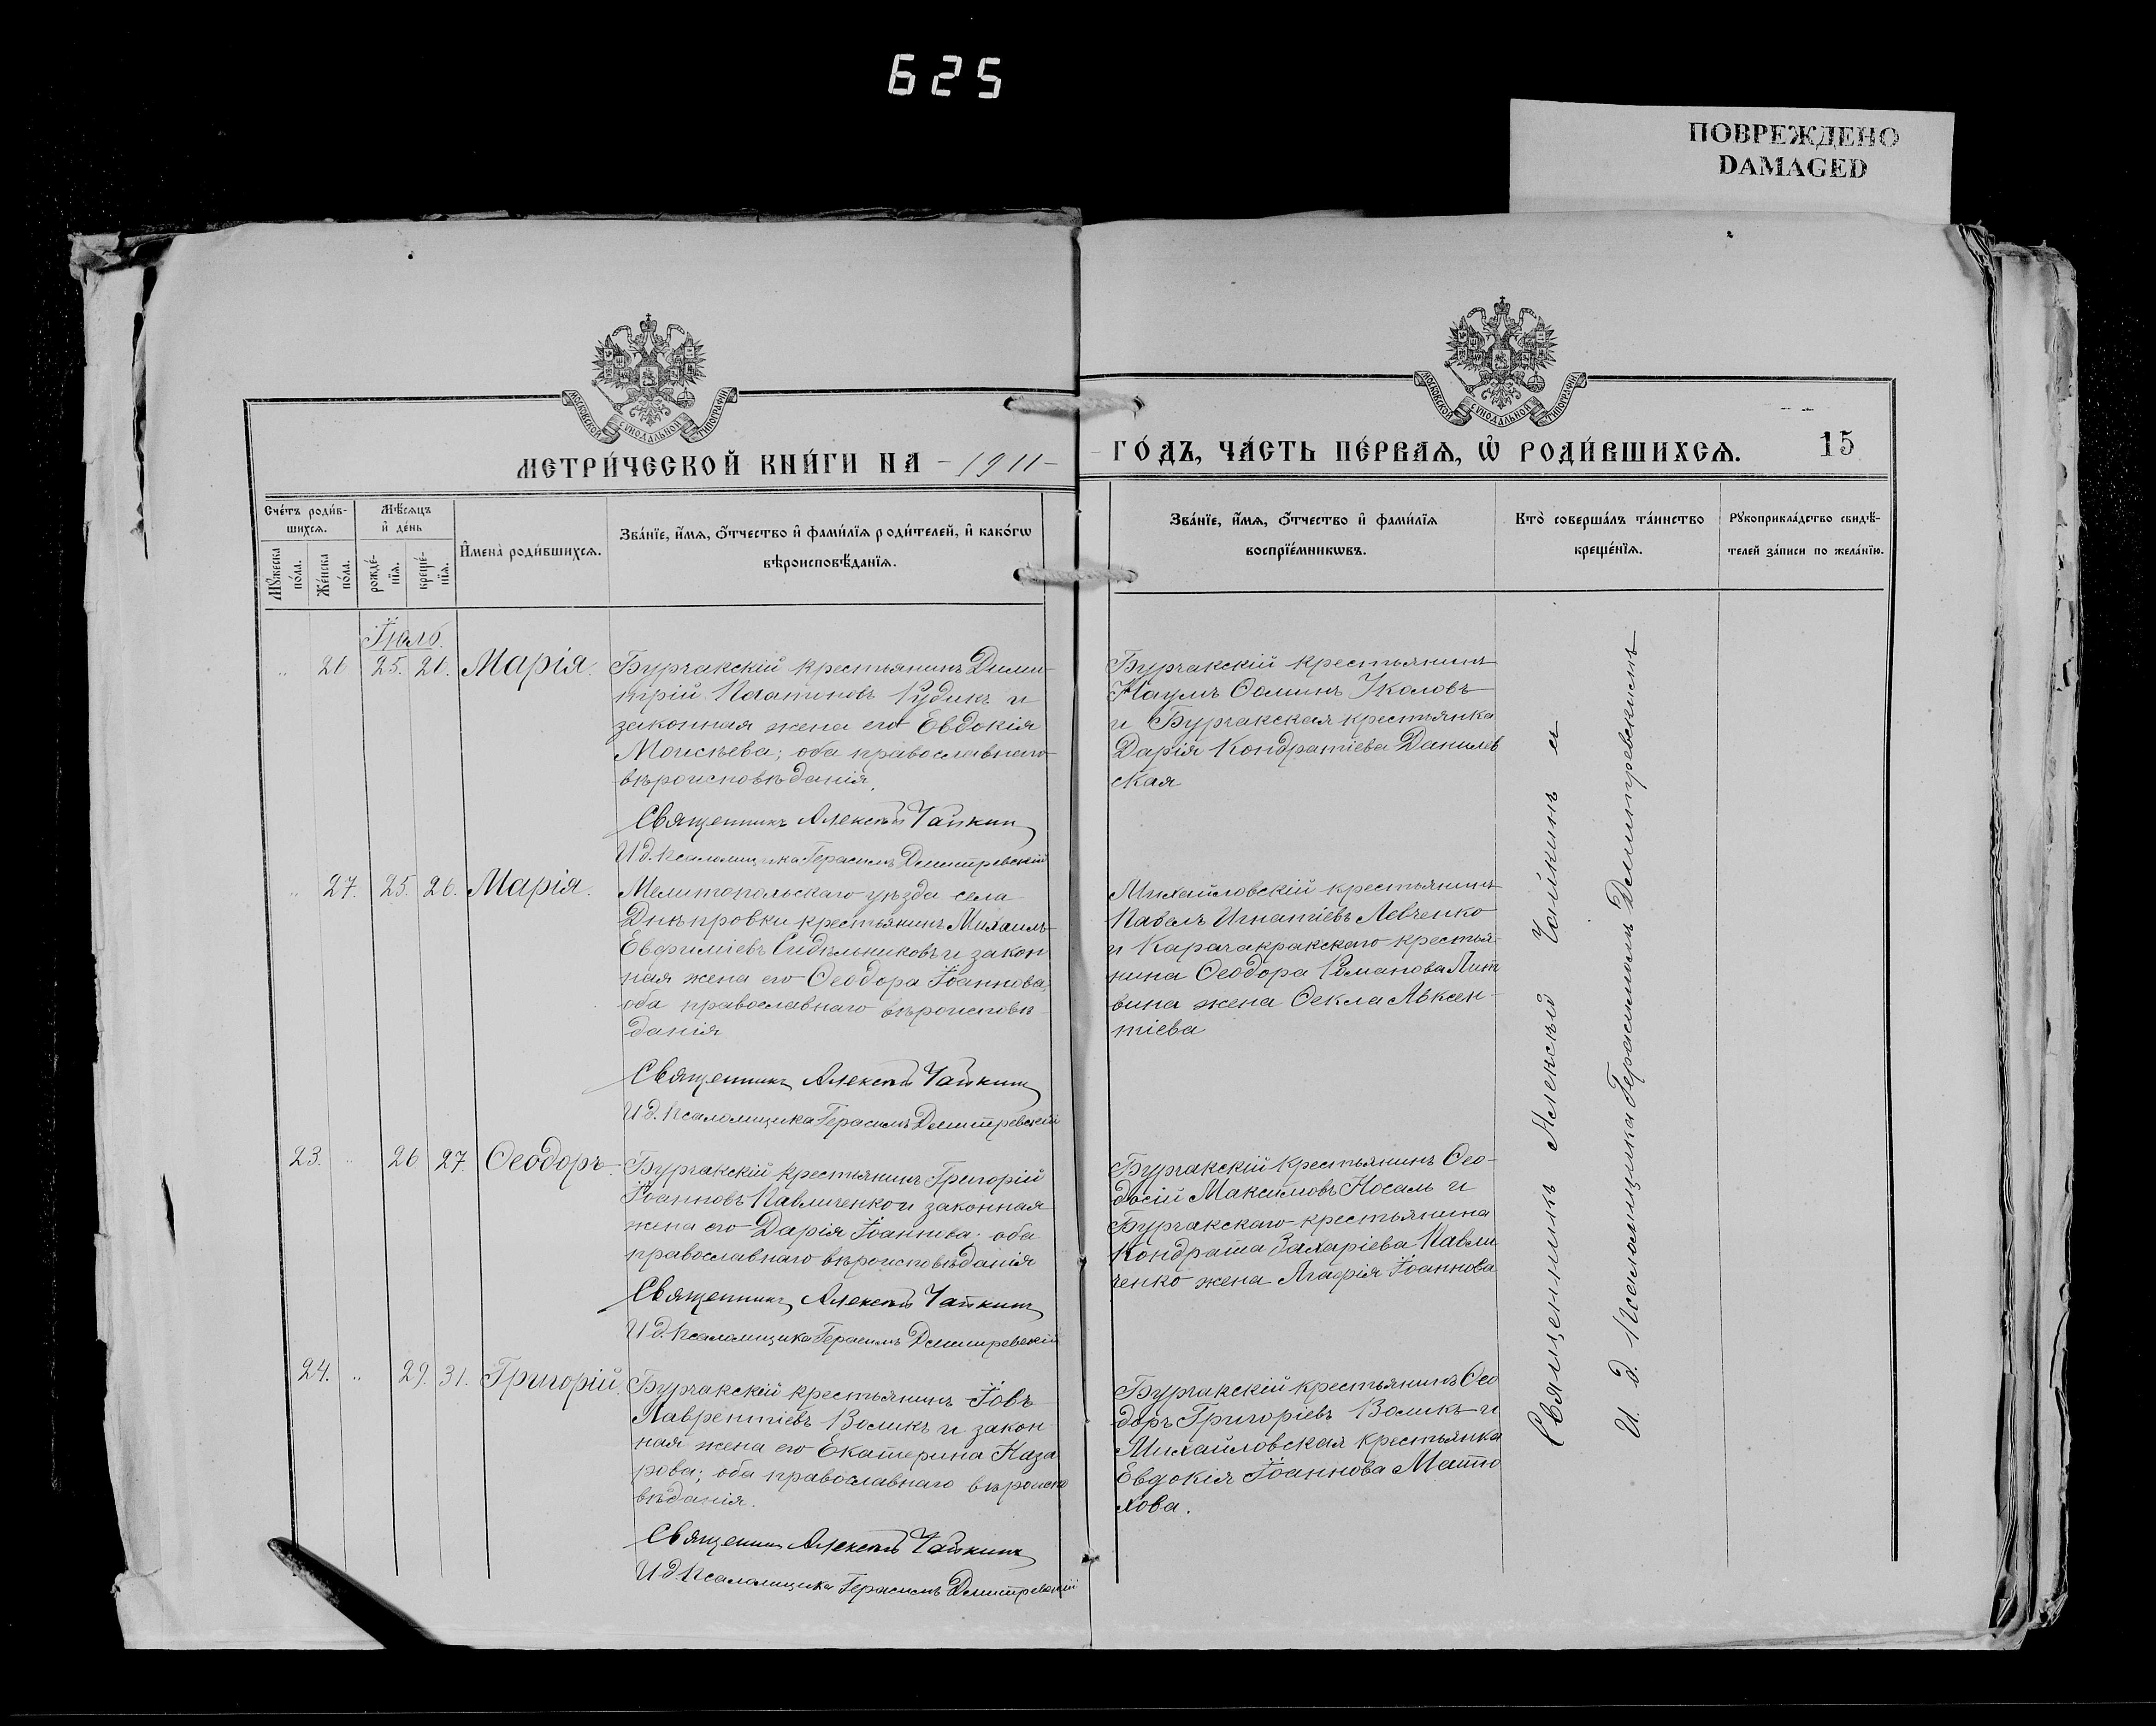 625
ПОВРЕЖДЕНО
DAMAGED
МОСКОВСКОЙ СѴНОДАЛЬНОЙ ТИПОГРАФІИ
МОСКОВСКОЙ СѴНОДАЛЬНОЙ ТИПОГРАФІИ
МЕТРИ́ЧЕСКОЙ КНИ́ГИ НА -1911-
ГО́ДЪ, ЧА́СТЬ ПЕ́РВАѦ, Ѡ҆ РОДИ́ВШИХСѦ. 15
Сче́тъ роди́в-
шихсѧ.
Мꙋ́жеска по́ла.
Же́нска по́ла.
Мѣ́сѧцъ
и҆ де́нь
рожде́-
нїѧ.
креще́-
нїѧ.
И҆мена̀ роди́вшихсѧ.
Зва́нїе, и҆́мѧ, ѻ҆́тчество и҆ фами́лїѧ роди́телей, и҆ како́гѡ
вѣроисповѣ́данїѧ.
Зва́нїе, и҆́мѧ, ѻ҆́тчество и҆ фами́лїѧ
воспрїе́мникѡвъ.
Кто̀ соверша́лъ та́инство
креще́нїѧ.
Рꙋкоприкла́дство свидѣ́-
телей за́писи по жела́нїю.
Іюль.
„ 26 25. 26. Марія.
Бурчакскій крестьянинъ Дими-
трій Платоновъ Рудикъ и
законная жена его Евдокія
Моисѣева; оба православнаго
вѣроисповѣданія.
Священникъ Алексѣй Чайкинъ
И д. Псаломщика Герасимъ Дмитревскій
Бурчакскій крестьянинъ
Наумъ Ѳоминъ Уколовъ
и Бурчакская крестьянка
Дарія Кондратіева Данилев
ская
„ 27. 25. 26. Марія.
Мелитопольскаго уѣзда села
Днѣпровки крестьянинъ Михаилъ
Евфиміевъ Сидѣльниковъ и закон
ная жена его Ѳеодора Іоаннова;
оба православнаго вѣроисповѣ
данія
Священникъ Алексѣй Чайкинъ
И д. Псаломщика Герасимъ Дмитревскій
Михайловскій крестьянинъ
Павелъ Игнатіевъ Левченко
и Карачакракскаго крестья-
нина Ѳеодора Романова Лит
вина жена Ѳекла Авксен-
тіева
23. „ 26 27. Ѳеодоръ.
Бурчакскій крестьянинъ Григорій
Іоанновъ Павличенко и законная
жена его Дарія Іоаннова; оба
православнаго вѣроисповѣданія
Священникъ Алексѣй Чайкинъ
И д. Псаломщика Герасимъ Дмитревскій
Бурчакскій крестьянинъ Ѳео-
досій Максимовъ Носаль и
Бурчакскаго крестьянина
Кондрата Захаріева Павли
ченко жена Агафія Іоаннова
24. „ 29. 31. Григорій.
Бурчакскій крестьянинъ Іовъ
Лаврентіевъ Воликъ и закон
ная жена его Екатерина Наза
рова; оба православнаго вѣроиспо
вѣданія.
Священникъ Алексѣй Чайкинъ
И д. Псаломщика Герасимъ Дмитревскій
Бурчакскій крестьянинъ Ѳео
доръ Григоріевъ Воликъ и
Михайловская крестьянка
Евдокія Іоаннова Матю
хова.
Священникъ Алексѣй Чайкинъ и
И. д. Псаломщика Герасимъ Дмитревскій